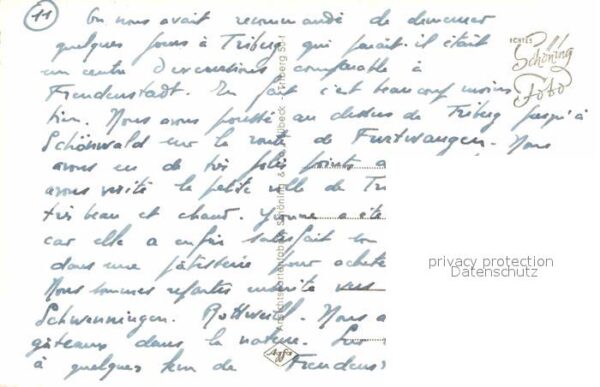 11
On nous avait recommandé de demeurer
quelques jours à Triberg qui paraît-il était
un centre d'excursions comparable à
Freudenstadt. En fait c'est beaucoup moins
bien. Nous avons poussé au dessus de Triberg jusqu'à
Schönwald sur la route de Furtwangen. Nous
avons eu de très jolis points
avons visité la petite ville de Tri
très beau et chaud. Yvonne a été
car elle a enfin satisfait son
dans une pâtisserie pour achete
Nous sommes repartis ensuite vers
Schwenningen. Rottweill. Nous a
gâteaux dans la nature.
à quelques km de Freudens
ECHTES
Schöning
Foto
Ansichtskartenverlag Schöning & Co., Lübeck
Triberg 55
Agfa
privacy protection
Datenschutz